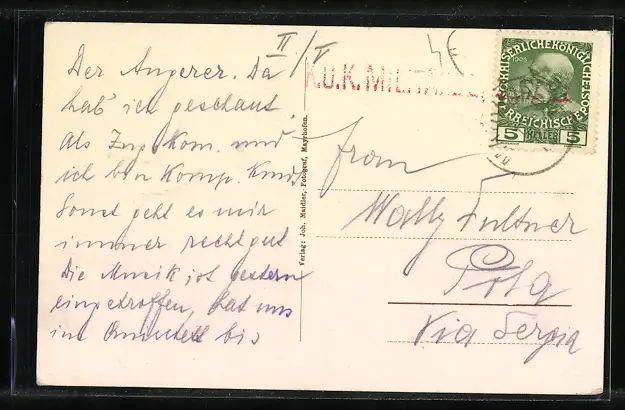 II/V
Der Angerer. Da
hab' ich geschaut
Als Zugskom. und
ich bin Komp. Kmdt
Sonst geht es mir
immer recht gut
Die Musik ist gestern
eingetroffen, hat uns
im bis
Verlag: Joh. Maidler, Fotograf, Mayrhofen.
K.U.K. MILIT
1908
5 HELLER 5
Frau
Wally Fultner
Pola
Via Sergia